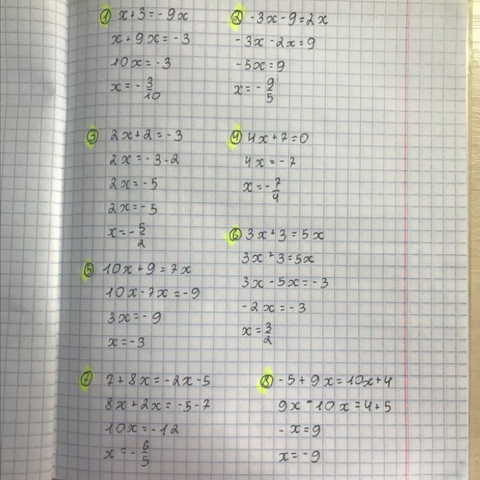 ① x+3=-9x
x+9x=-3
10x=-3
x=-3/10
② -3x-9=2x
-3x-2x=9
-5x=9
x=-9/5
③ 2x+2=-3
2x=-3-2
2x=-5
2x=-5
x=-5/2
④ 4x+7=0
4x=-7
x=-7/4
⑤ 10x+9=7x
10x-7x=-9
3x=-9
x=-3
⑥ 3x+3=5x
3x+3=5x
3x-5x=-3
-2x=-3
x=3/2
⑦ 7+8x=-2x-5
8x+2x=-5-7
10x=-12
x=-6/5
⑧ -5+9x=10x+4
9x-10x=4+5
-x=9
x=-9